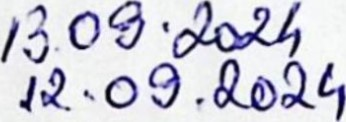 13.09.2024
12.09.2024